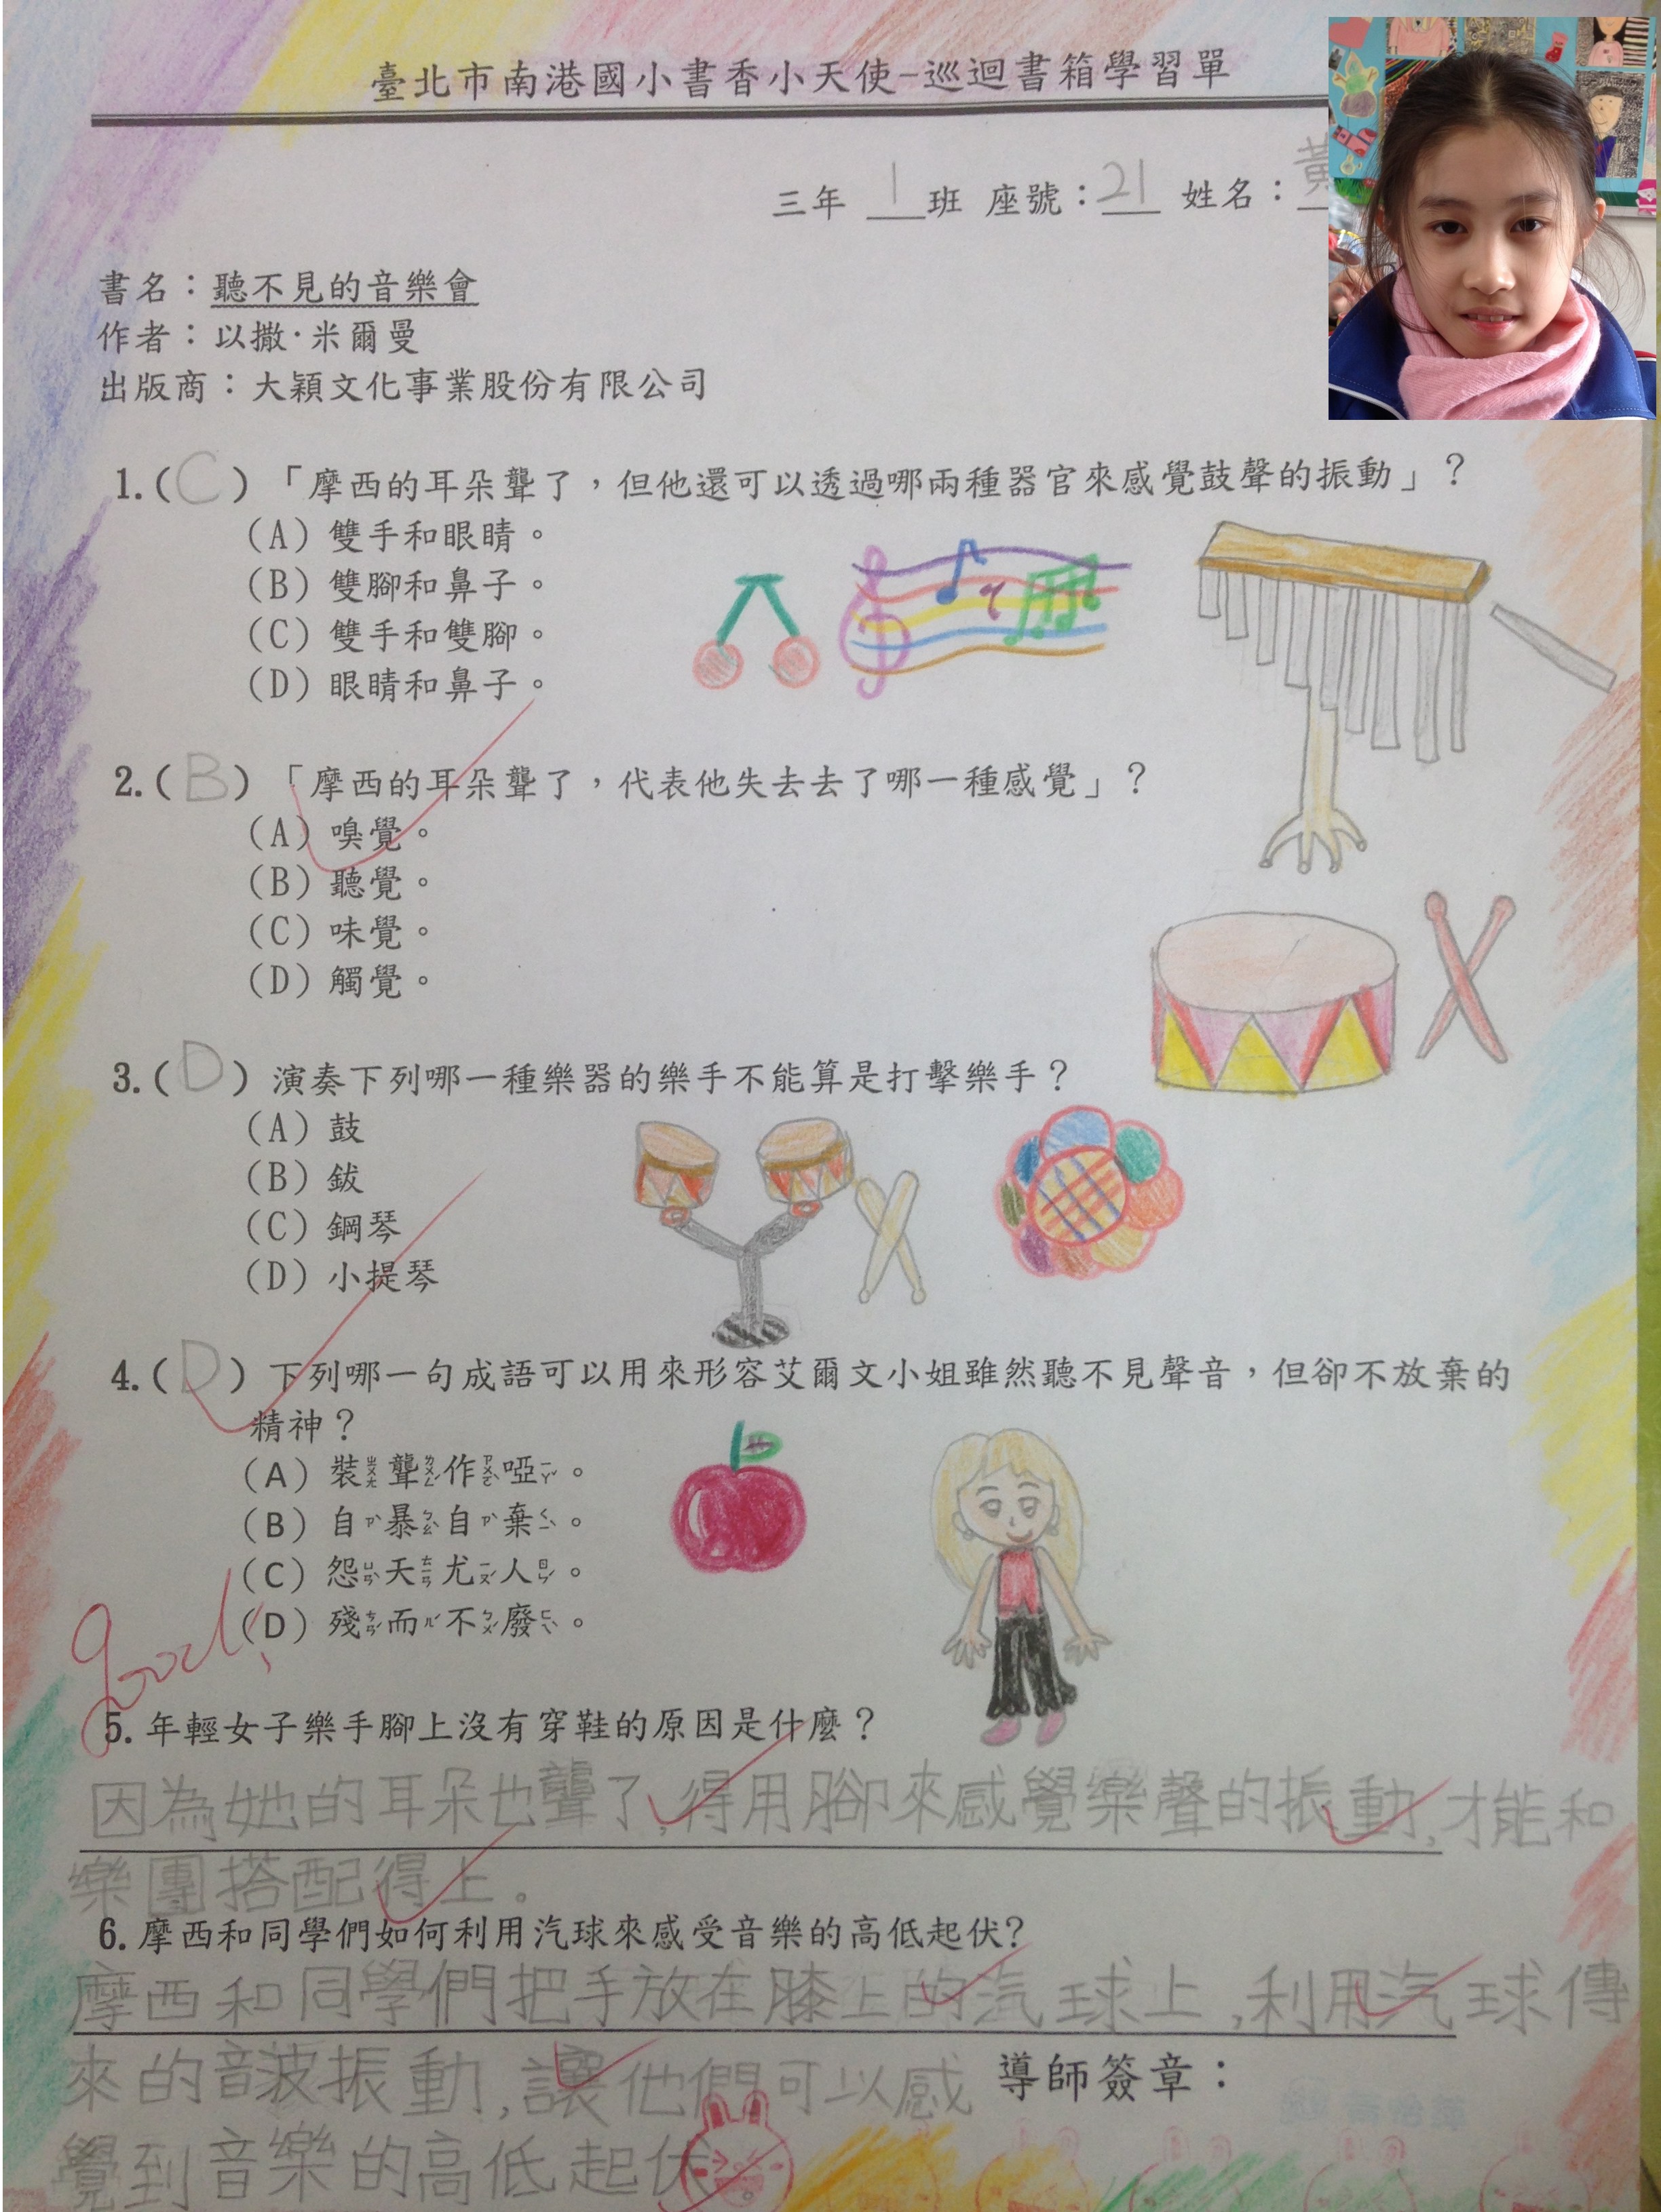 臺北市南港國小書香小天使-巡迴書箱學習單
三年 1 班 座號：21 姓名：黃
書名：聽不見的音樂會
作者：以撒·米爾曼
出版商：大穎文化事業股份有限公司
1.(C)「摩西的耳朵聾了，但他還可以透過哪兩種器官來感覺鼓聲的振動」？
(A)雙手和眼睛。
(B)雙腳和鼻子。
(C)雙手和雙腳。
(D)眼睛和鼻子。
2.(B)「摩西的耳朵聾了，代表他失去去了哪一種感覺」？
(A)嗅覺。
(B)聽覺。
(C)味覺。
(D)觸覺。
3.(D)演奏下列哪一種樂器的樂手不能算是打擊樂手？
(A)鼓
(B)鈸
(C)鋼琴
(D)小提琴
4.(D)下列哪一句成語可以用來形容艾爾文小姐雖然聽不見聲音，但卻不放棄的
精神？
(A)裝ㄓㄨㄤ聾ㄌㄨㄥˊ作ㄗㄨㄛˋ啞ㄧㄚˇ。
(B)自ㄗˋ暴ㄅㄠˋ自ㄗˋ棄ㄑㄧˋ。
(C)怨ㄩㄢˋ天ㄊㄧㄢ尤ㄧㄡˊ人ㄖㄣˊ。
(D)殘ㄘㄢˊ而ㄦˊ不ㄅㄨˊ廢ㄈㄟˋ。
good!
5.年輕女子樂手腳上沒有穿鞋的原因是什麼？
因為她的耳朵也聾了，得用腳來感覺樂聲的振動，才能和
樂團搭配得上。
6.摩西和同學們如何利用汽球來感受音樂的高低起伏?
摩西和同學們把手放在膝上的汽球上，利用汽球傳
來的音波振動，讓他們可以感
導師簽章：
覺到音樂的高低起伏